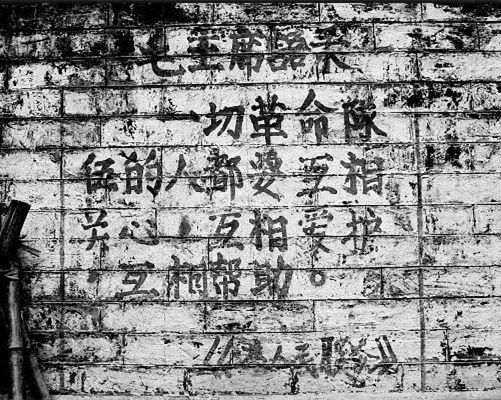 毛主席语录
一切革命队
伍的人都要互相
关心，互相爱护
，互相帮助。
《为人民服务》